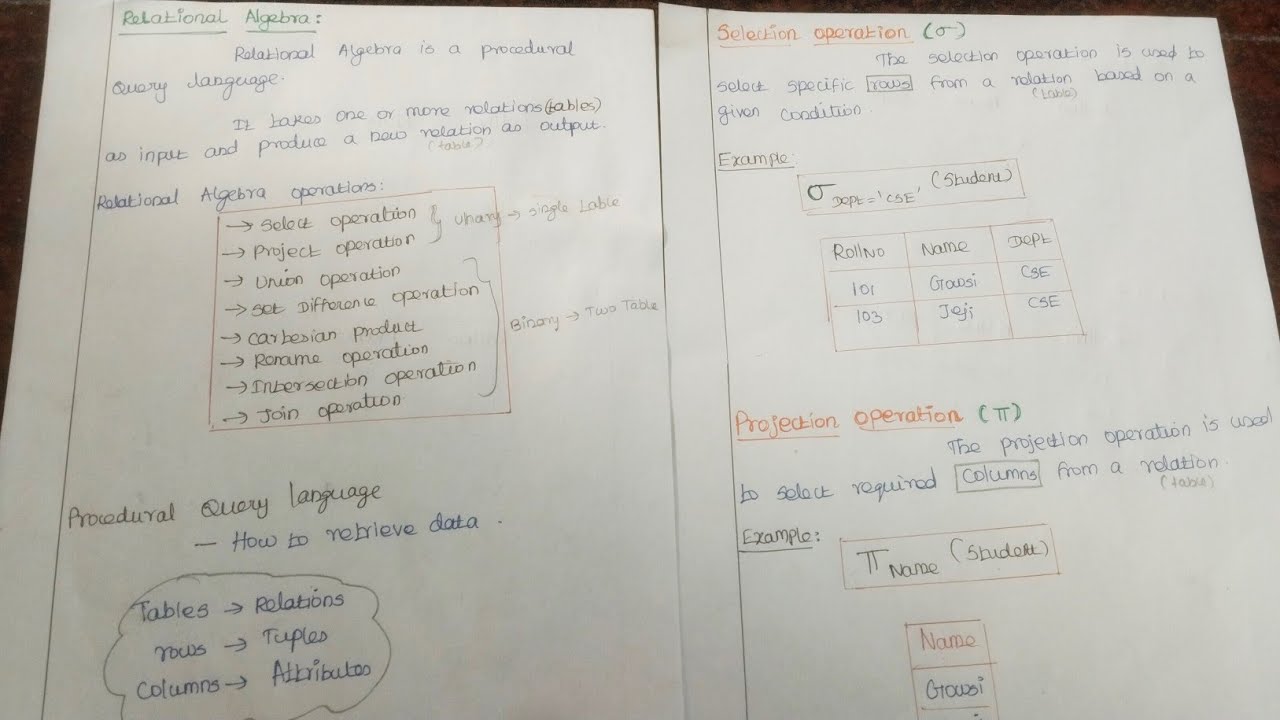 Relational Algebra:
Relational Algebra is a procedural
Query language.
It takes one or more relations(tables)
as input and produce a new relation as output.
(table)
Relational Algebra operations:
→ Select operation
→ Project operation
Unary → single table
→ Union operation
→ Set Difference operation
→ Cartesian product
→ Rename operation
→ Intersection operation
→ Join operation
Binary → Two Table
Procedural Query language
— How to retrieve data.
Tables → Relations
rows → Tuples
Columns → Attributes
Selection operation (σ)
The selection operation is used to
select specific rows from a relation based on a
(table)
given condition.
Example:
σ DEPt='CSE' (Student)
RollNo Name DEPt
101 Gowsi CSE
103 Jeji CSE
Projection operation (π)
The projection operation is used
to select required columns from a relation.
(table)
Example:
π Name (Student)
Name
Gowsi